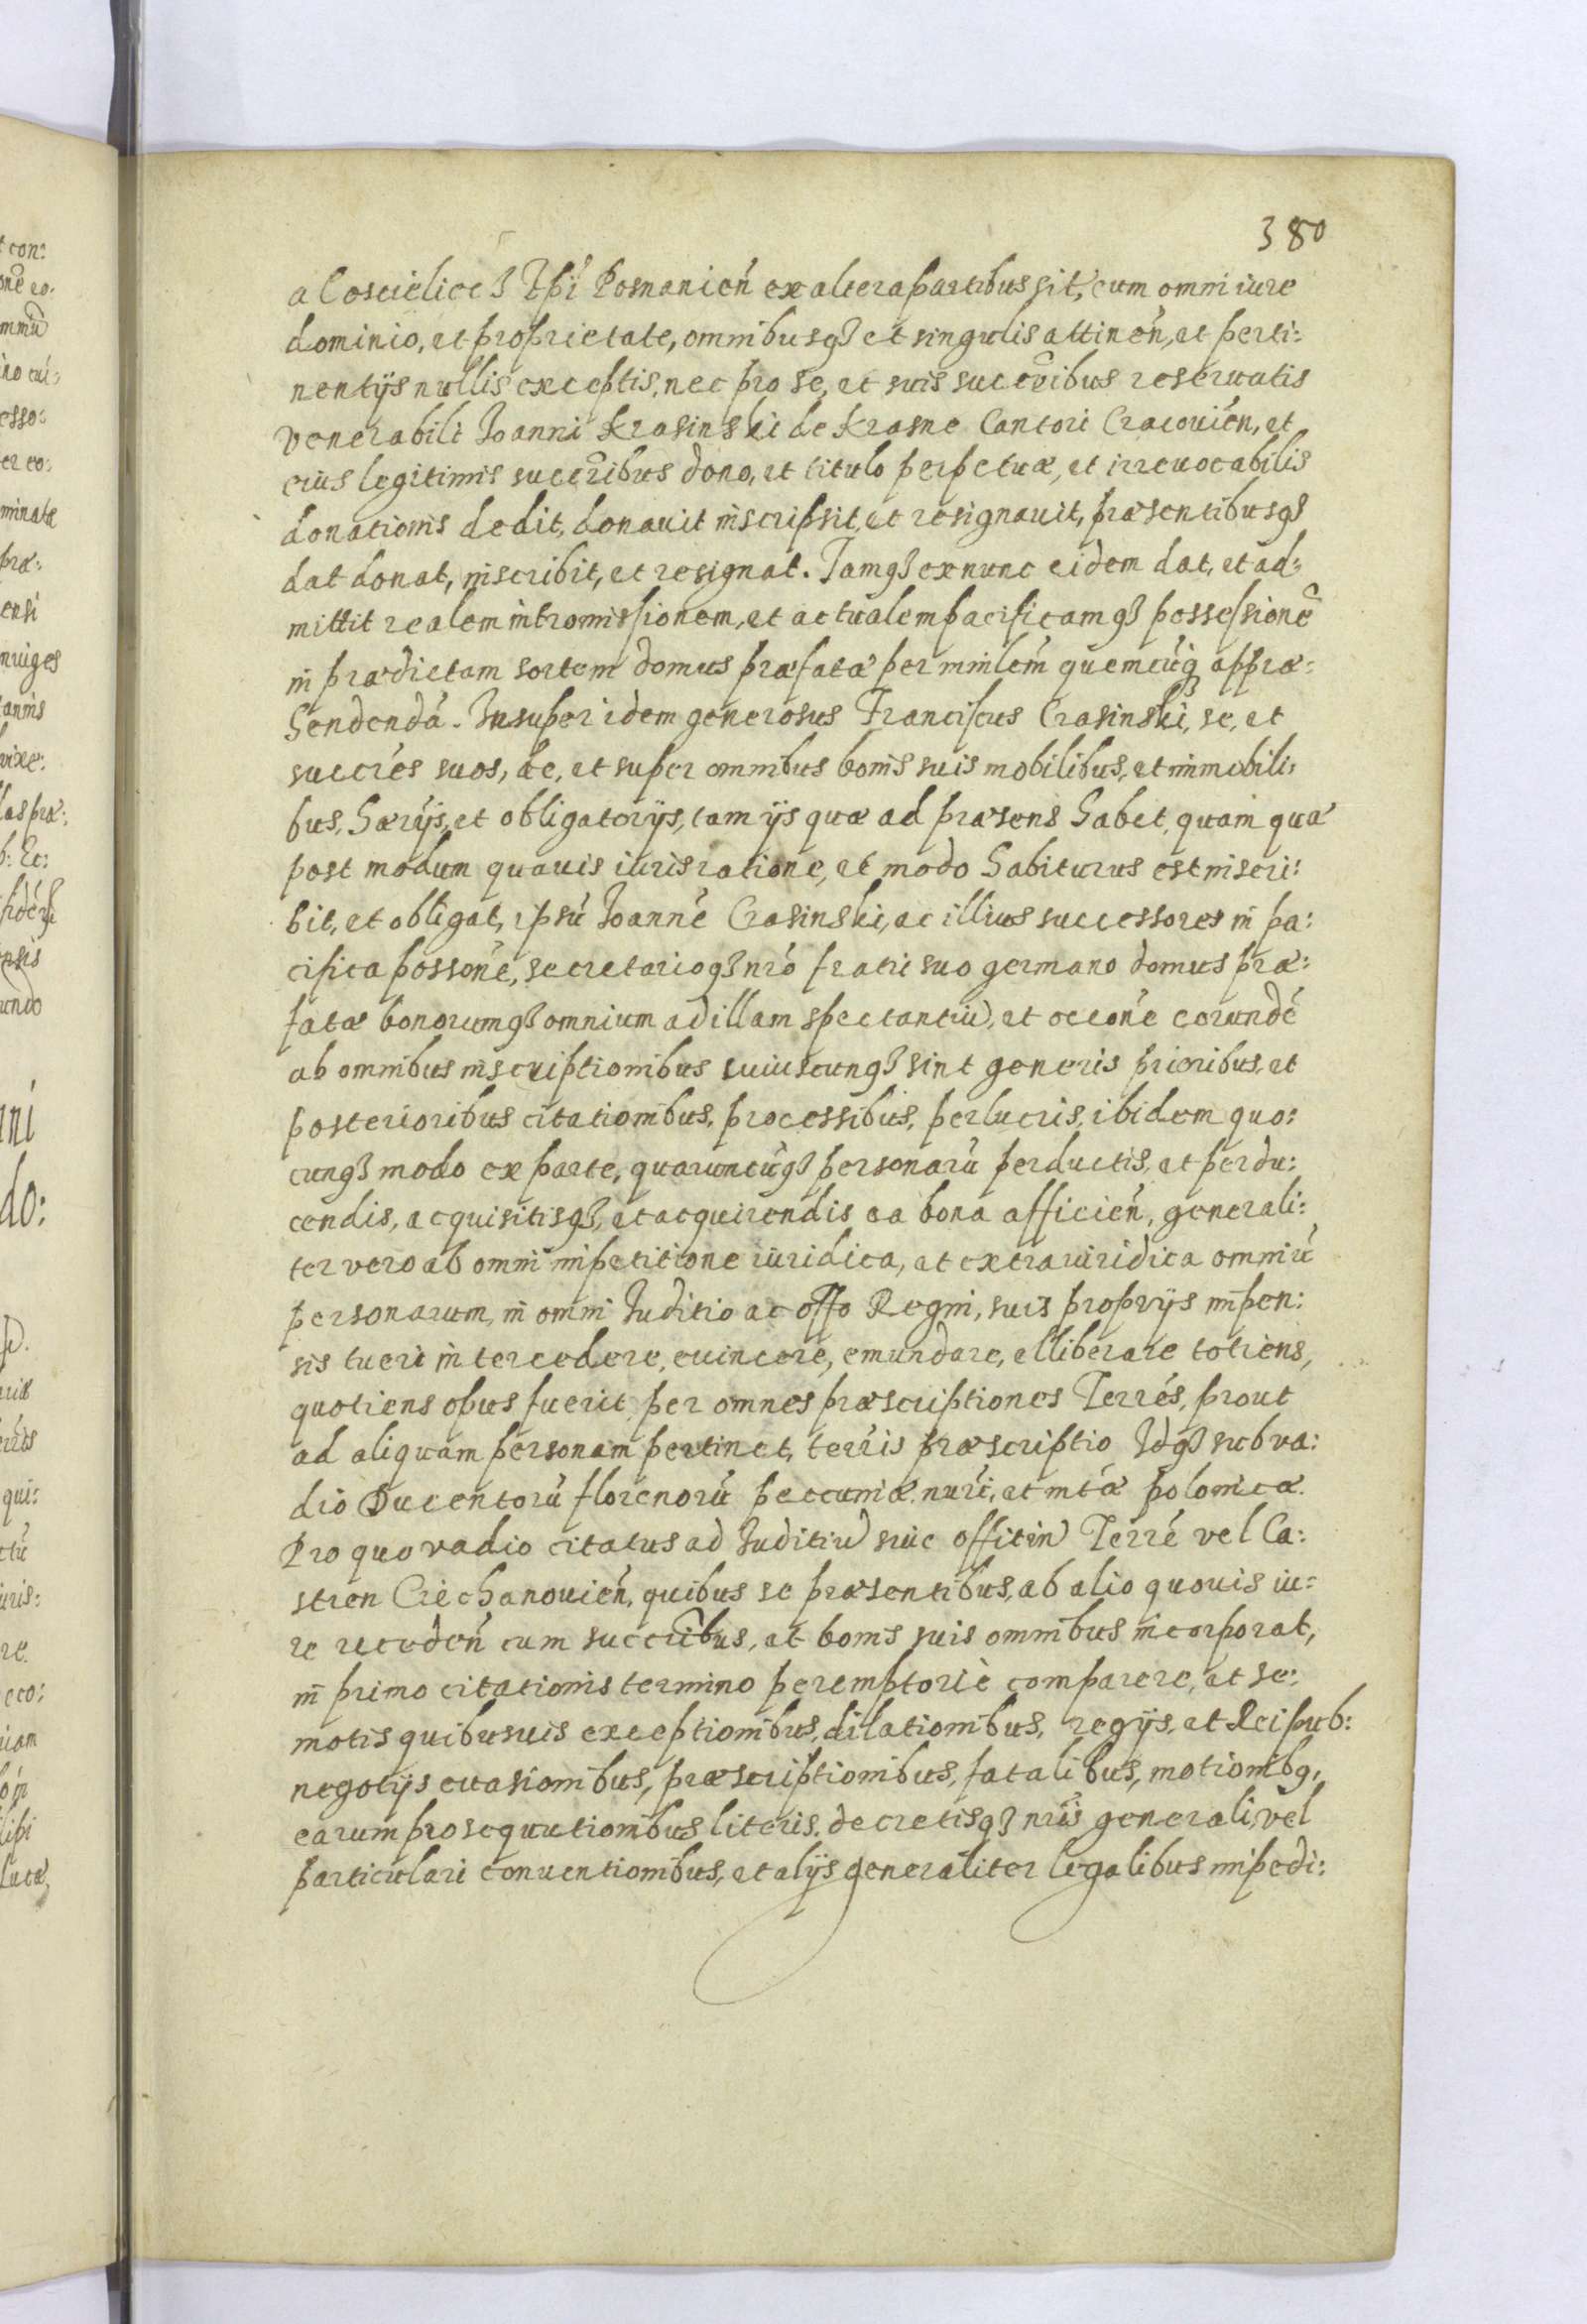 380
a Coscieliecz Epi Posnanien ex altera partibus sit, cum omni iure
dominio, et proprietate, omnibusq3 et singulis attinen, et perti:
nentijs nullis exceptis, nec pro se, et suis succribus reseruatis
venerabili Joanni Krasinski de Krasne Cantori Cracouien, et
eius legitimis succribus dono, et titulo perpetuæ, et irreuocabilis
donationis dedit, donauit inscripsit, et resignauit, præsentibusq3
dat donat, inscribit, et resignat. Jamq3 ex nunc eidem dat, et ad:
mittit realem intromissionem, et actualem pacificamq3 possessionē
in prædictam sortem domus præfatæ per minlem quemcūq3 appræ:
hendendā. Insuper idem generosus Franciscus Crasinski, se, et
succres suos, de, et super omnibus bonis suis mobilibus, et immobili:
bus, hærijs, et obligatorijs, tam ijs quæ ad præsens habet, quam quæ
post modum quauis iuris ratione, et modo habiturus est inscri:
bit, et obligat, ipsū Joannē Crasinski, ac illius successores in pa:
cifica possone, secretarioq3 nro fratri suo germano domus præ:
fatæ bonorumq3 omnium ad illam spectantiū, et occone eorundē
ab omnibus inscriptionibus cuiuscunq3 sint generis prioribus, et
posterioribus citationibus, processibus, perlucris, ibidem quo:
cunq3 modo ex parte, quarumcūq3 personarū perductis, et perdu:
cendis, acquisitisq3, et acquirendis ea bona afficien, generali:
ter vero ab omni impetitione iuridica, et extraiuridica omniū
personarum, in omni Juditio ac offo Regni, suis proprijs impen:
sis tueri intercedere, euincere, emundare, elliberare totiens,
quotiens opus fuerit per omnes præscriptiones Terres, prout
ad aliquam personam pertinet, terris præscriptio Idq3 sub va:
dio Ducentorū florenorū peccuniæ nuri, et mtæ polonicæ.
Pro quo vadio citatus ad Juditiū siue offitiū Terre vel Ca:
stren Ciechanouien, quibus se præsentibus, ab alio quouis iu:
re receden cum succribus, et bonis suis omnibus incorporat,
in primo citationis termino peremptoriè comparere, et se:
motis quibusuis exceptionibus, dilationibus, regijs, et Reipub:
negotijs euasionibus, præscriptionibus, fatalibus, motionibq,
earum prosequutionibus literis, decretisq3 nris generali, vel
particulari conuentionibus, et alijs generaliter legalibus impedi: